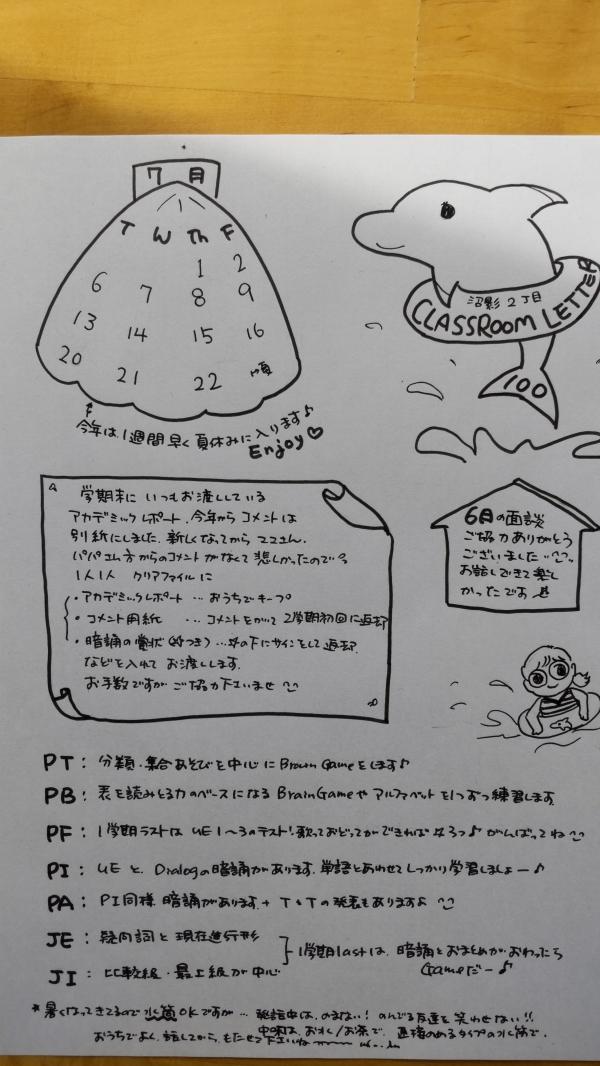 7月
T W Th F
1 2
6 7 8 9
13 14 15 16
20 21 22
今年は、1週間早く夏休みに入ります♪
Enjoy♡
沼影2丁目
CLASSROOM LETTER
100
学期末に いつもお渡ししている
アカデミックレポート、今年から コメントは
別紙にしました。新しくなってから ママさん、
パパさん方からのコメントがなくて悲しかったので。
1人1人 クリアファイルに
・アカデミックレポート … おうちでキープ
・コメント用紙 … コメントをかいて 2学期初回に返却
・暗誦の賞状(☆つき) … ☆の下にサインをして返却
などを入れて お渡しします。
お手数ですが ご協力下さいませ
6月の面談
ご協力ありがとう
ございました
お話しできて楽し
かったです
PT : 分類・集合あそびを中心に Brain Gameをします♪
PB : 表を読みとる力のベースになる Brain Gameや アルファベットを1つずつ練習します
PF : 1学期ラストは UE1〜3のテスト! 歌っておどってができれば ☆3つ♪ がんばってね
PI : UE と、Dialogの暗誦があります。単語とあわせてしっかり学習しましょー♪
PA : PI同様 暗誦があります + T&Tの発表もありますよ
JE : 疑問詞と現在進行形
JI : 比較級・最上級が中心
1学期lastは、暗誦とおまとめがおわったら
Gameだー♪
*暑くなってきてるので水筒OKですが… 発話中は、のまない! のんでる友達を笑わせない!!
中味は、お水/お茶で、直接のめるタイプの水筒で。
おうちでよく、話してから、もたせて下さいね